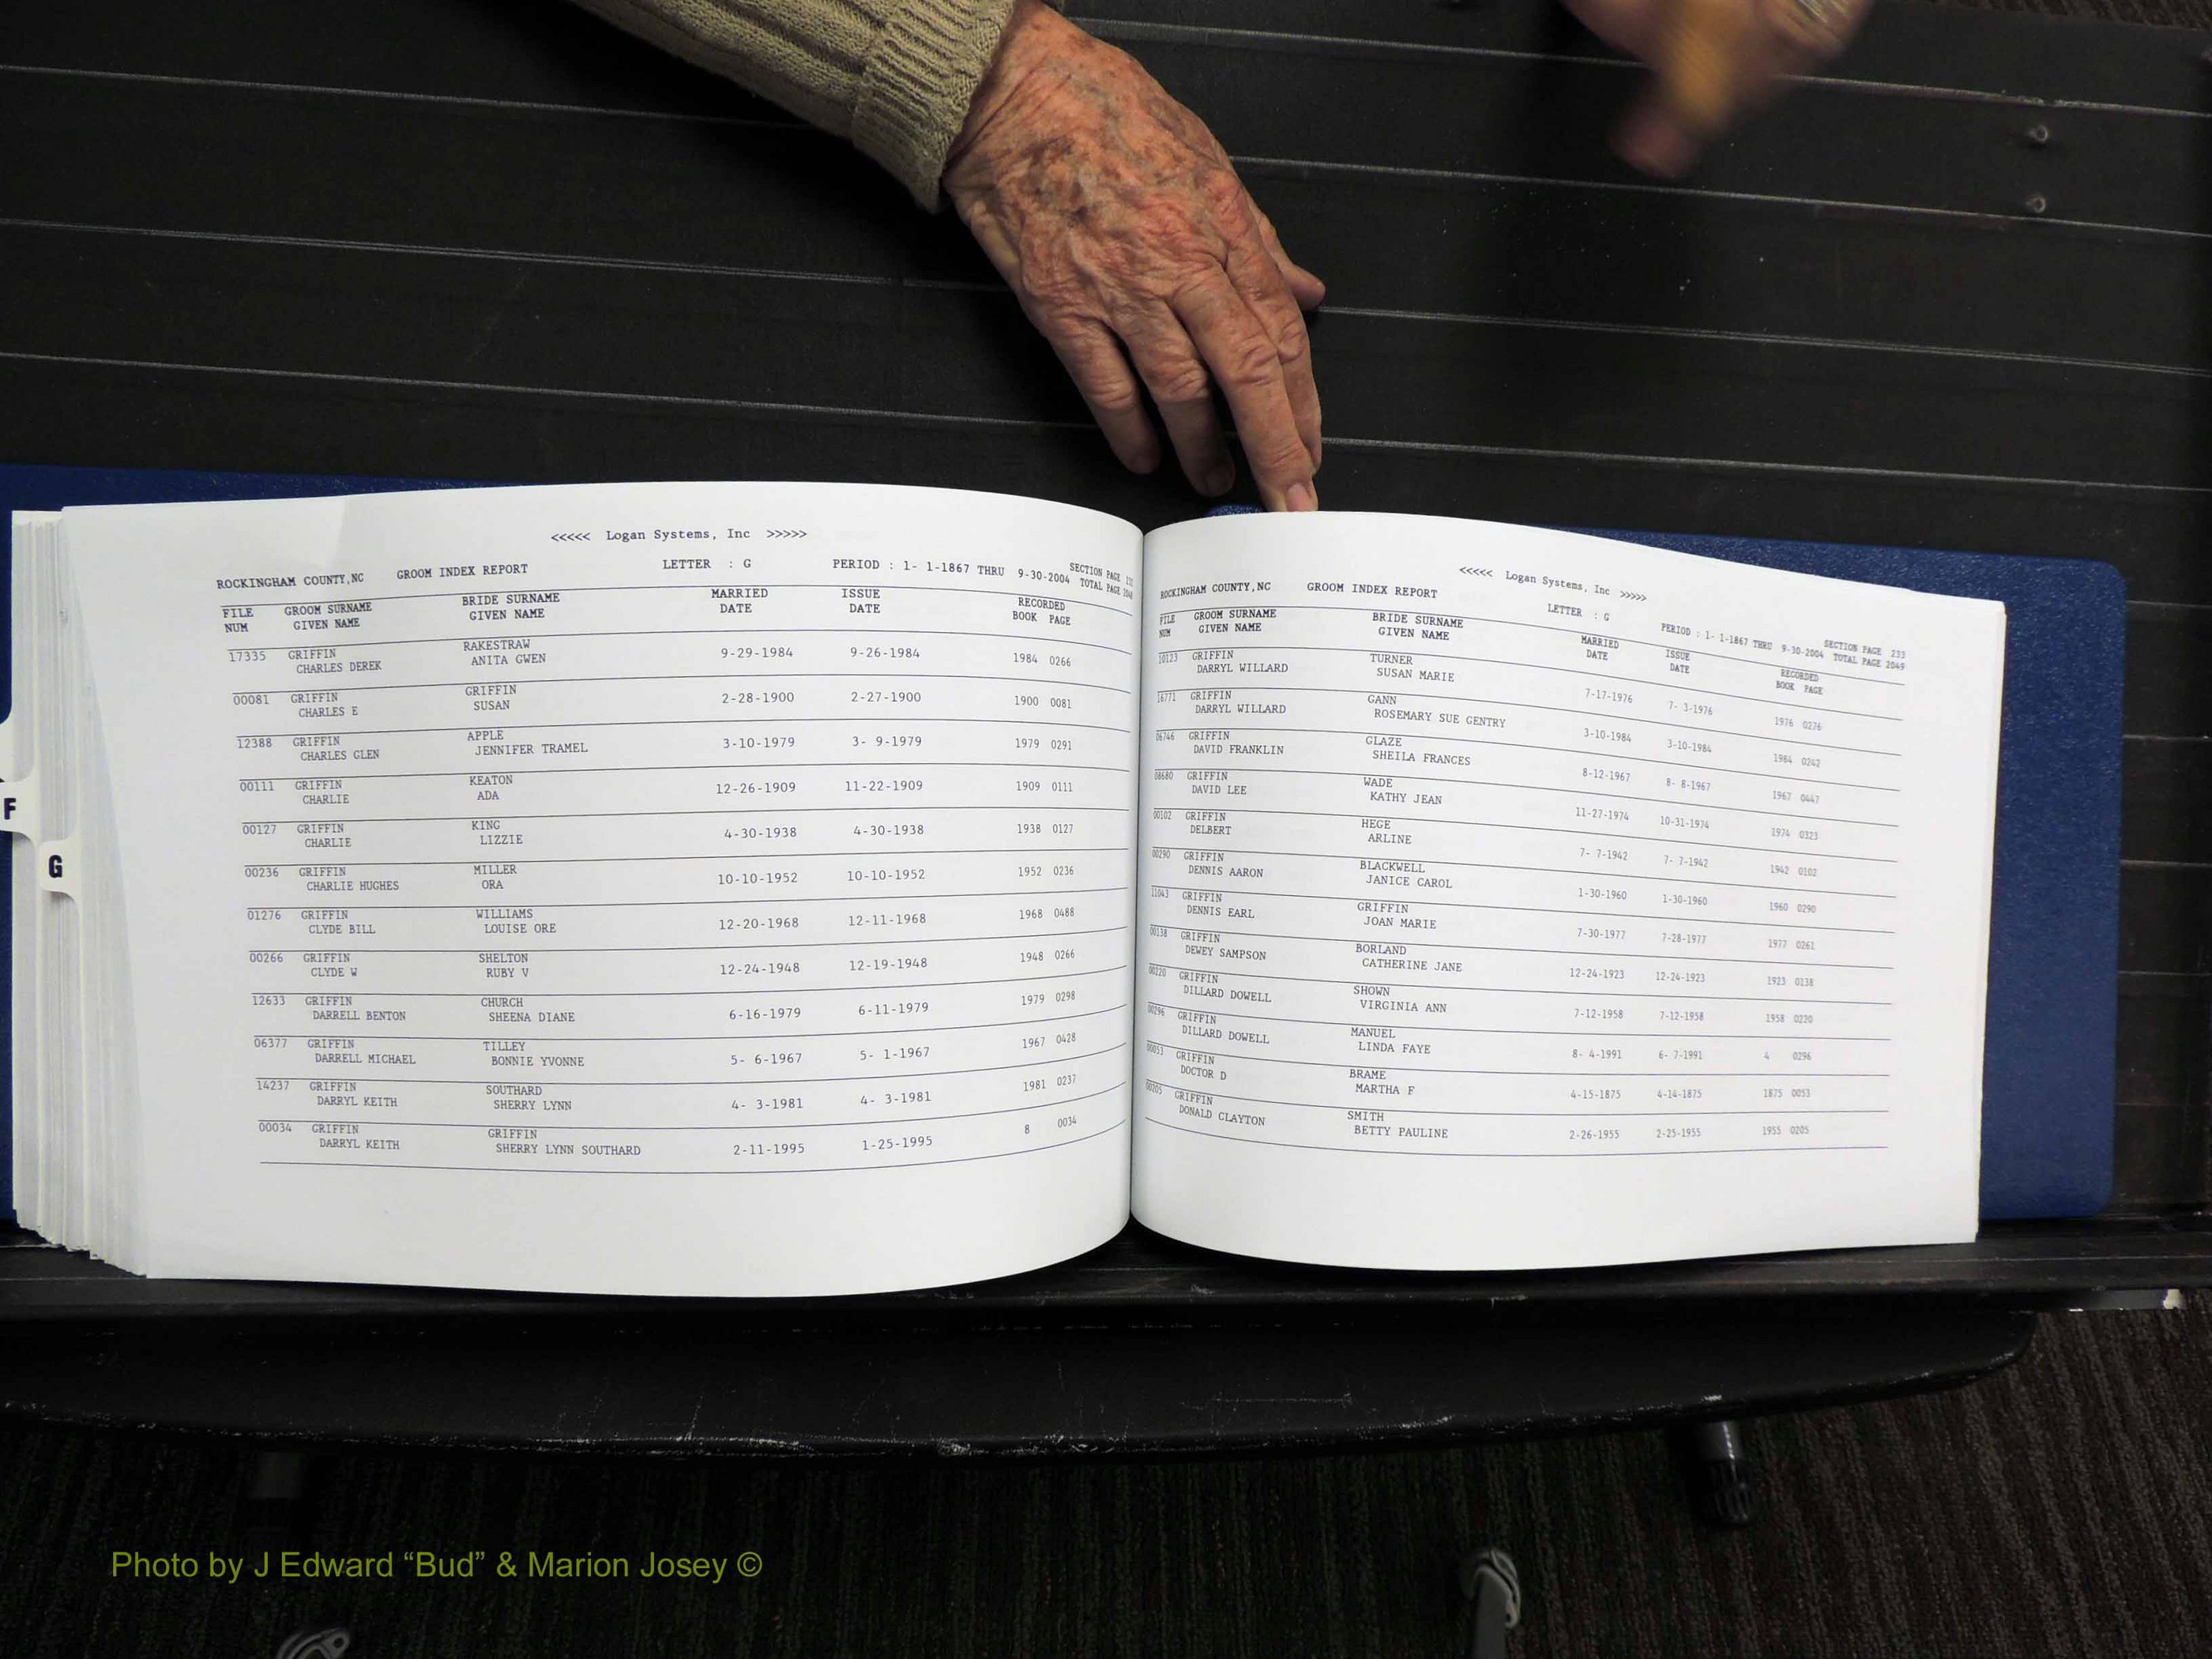 <<<<< Logan Systems, Inc >>>>>
ROCKINGHAM COUNTY,NC GROOM INDEX REPORT LETTER : G PERIOD : 1- 1-1867 THRU 9-30-2004 SECTION PAGE
TOTAL PAGE
FILE GROOM SURNAME BRIDE SURNAME MARRIED ISSUE RECORDED
NUM GIVEN NAME GIVEN NAME DATE DATE BOOK PAGE
17335 GRIFFIN RAKESTRAW 9-29-1984 9-26-1984 1984 0266
CHARLES DEREK ANITA GWEN
00081 GRIFFIN GRIFFIN 2-28-1900 2-27-1900 1900 0081
CHARLES E SUSAN
12388 GRIFFIN APPLE 3-10-1979 3- 9-1979 1979 0291
CHARLES GLEN JENNIFER TRAMEL
00111 GRIFFIN KEATON 12-26-1909 11-22-1909 1909 0111
CHARLIE ADA
00127 GRIFFIN KING 4-30-1938 4-30-1938 1938 0127
CHARLIE LIZZIE
00236 GRIFFIN MILLER 10-10-1952 10-10-1952 1952 0236
CHARLIE HUGHES ORA
01276 GRIFFIN WILLIAMS 12-20-1968 12-11-1968 1968 0488
CLYDE BILL LOUISE ORE
00266 GRIFFIN SHELTON 12-24-1948 12-19-1948 1948 0266
CLYDE W RUBY V
12633 GRIFFIN CHURCH 6-16-1979 6-11-1979 1979 0298
DARRELL BENTON SHEENA DIANE
06377 GRIFFIN TILLEY 5- 6-1967 5- 1-1967 1967 0428
DARRELL MICHAEL BONNIE YVONNE
14237 GRIFFIN SOUTHARD 4- 3-1981 4- 3-1981 1981 0237
DARRYL KEITH SHERRY LYNN
00034 GRIFFIN GRIFFIN 2-11-1995 1-25-1995 8 0034
DARRYL KEITH SHERRY LYNN SOUTHARD
F
G
<<<<< Logan Systems, Inc >>>>>
ROCKINGHAM COUNTY,NC GROOM INDEX REPORT LETTER : G PERIOD : 1- 1-1867 THRU 9-30-2004 SECTION PAGE 233
TOTAL PAGE 2049
FILE GROOM SURNAME BRIDE SURNAME MARRIED ISSUE RECORDED
NUM GIVEN NAME GIVEN NAME DATE DATE BOOK PAGE
10123 GRIFFIN TURNER 7-17-1976 7- 3-1976 1976 0276
DARRYL WILLARD SUSAN MARIE
16771 GRIFFIN GANN 3-10-1984 3-10-1984 1984 0242
DARRYL WILLARD ROSEMARY SUE GENTRY
06746 GRIFFIN GLAZE 8-12-1967 8- 8-1967 1967 0447
DAVID FRANKLIN SHEILA FRANCES
08680 GRIFFIN WADE 11-27-1974 10-31-1974 1974 0323
DAVID LEE KATHY JEAN
00102 GRIFFIN HEGE 7- 7-1942 7- 7-1942 1942 0102
DELBERT ARLINE
00290 GRIFFIN BLACKWELL 1-30-1960 1-30-1960 1960 0290
DENNIS AARON JANICE CAROL
11043 GRIFFIN GRIFFIN 7-30-1977 7-28-1977 1977 0261
DENNIS EARL JOAN MARIE
00138 GRIFFIN BORLAND 12-24-1923 12-24-1923 1923 0138
DEWEY SAMPSON CATHERINE JANE
00220 GRIFFIN SHOWN 7-12-1958 7-12-1958 1958 0220
DILLARD DOWELL VIRGINIA ANN
00296 GRIFFIN MANUEL 8- 4-1991 6- 7-1991 4 0296
DILLARD DOWELL LINDA FAYE
00053 GRIFFIN BRAME 4-15-1875 4-14-1875 1875 0053
DOCTOR D MARTHA F
00205 GRIFFIN SMITH 2-26-1955 2-25-1955 1955 0205
DONALD CLAYTON BETTY PAULINE
Photo by J Edward “Bud” & Marion Josey ©